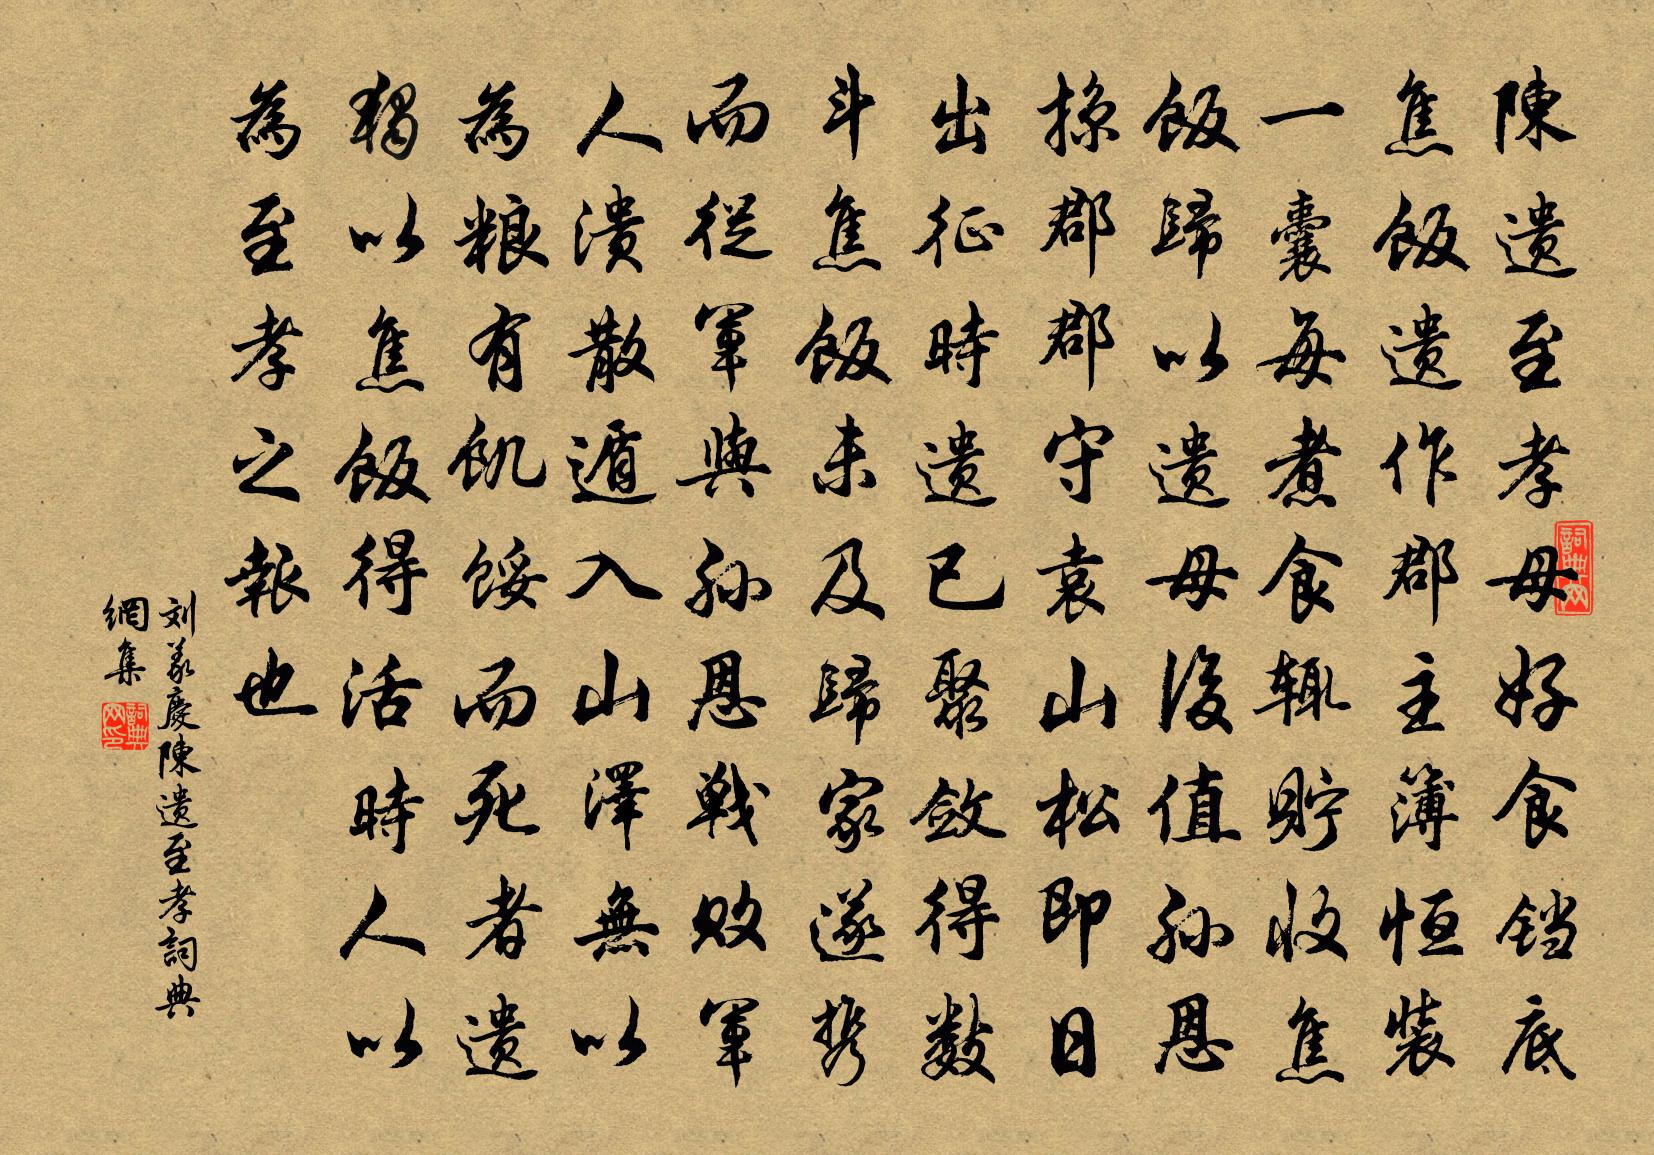 陳遗至孝母好食铛底
焦飯遗作郡主簿恒装
一囊每煮食辄貯收焦
飯歸以遗母後值孙恩
掠郡郡守袁山松即日
出征時遗已聚敛得數
斗焦飯未及歸家遂携
而從軍與孙恩戦败軍
人溃散遁入山澤無以
為粮有飢餒而死者遗
獨以焦飯得活時人以
為至孝之報也
刘義慶陳遗至孝詞典
網集
詞典网
詞典网印